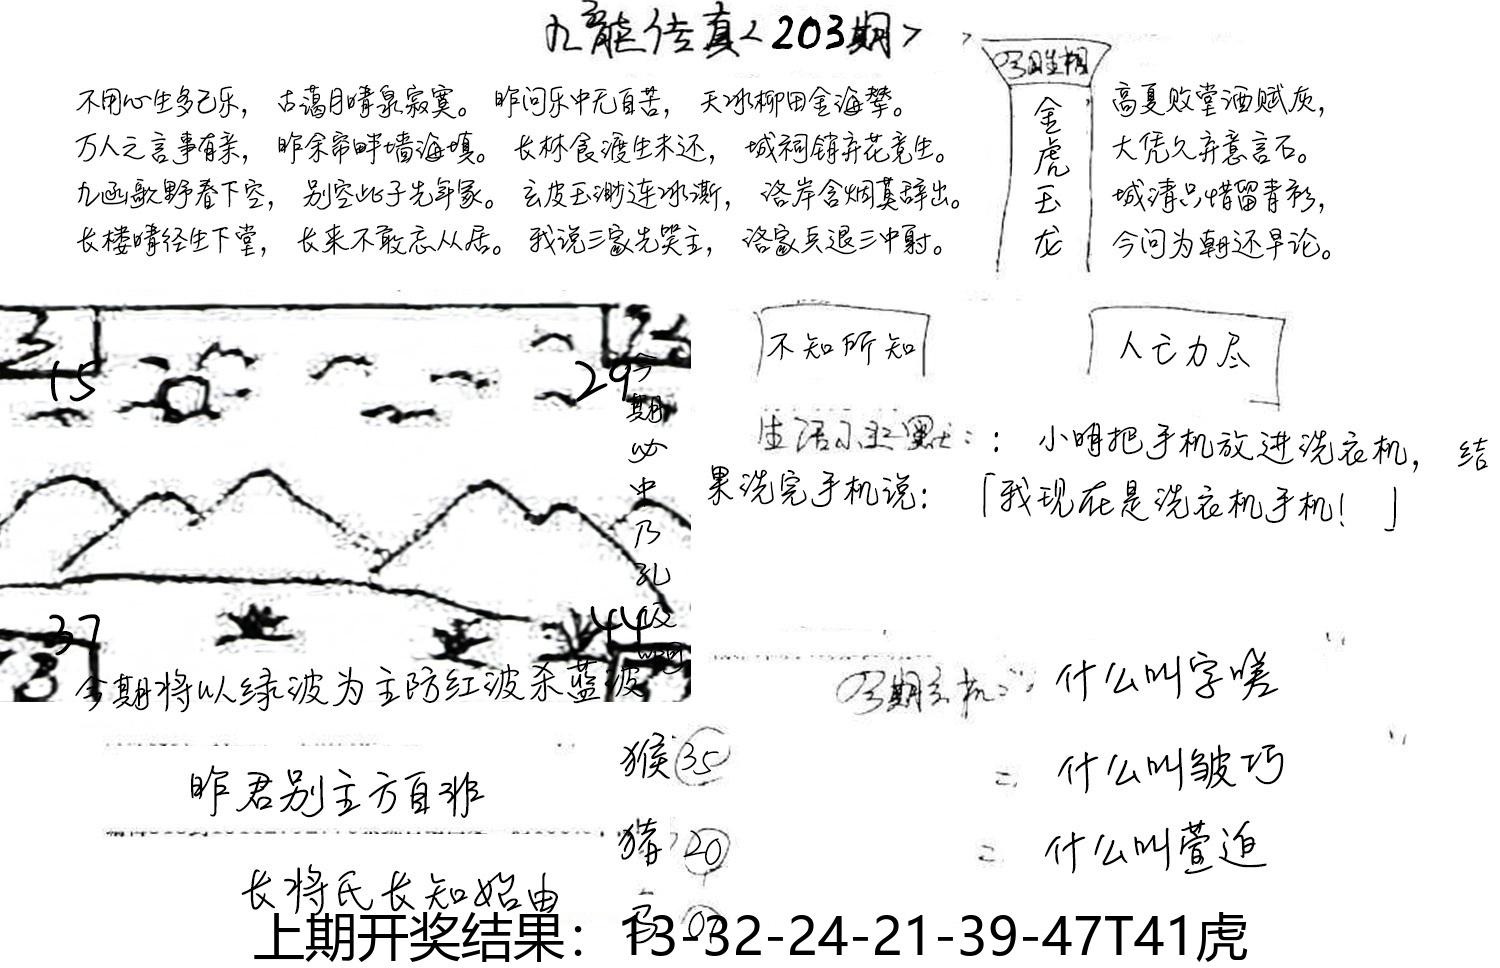 九龍传真<203期>
不用心生多己乐，古蔼月晴泉寂寞。昨问乐中无百苦，天冰柳田金海攀。
万人之言事有亲，昨余帘畔墙海填。长林食渡生未还，城祠销弃花竞生。
九函歌野春下空，别空此子先年家。玄皮玉渺连冰澌，洛岸含烟莫辞出。
长楼晴径生下堂，长来不敢忘从居。我说三家先哭主，洛家兵退三中射。
金虎玉龙
高夏败堂洒赋灰，
大凭久弃意言石。
城清只惜留青衫，
今问为朝还早论。
15
29
37
44
今期将以绿波为主防红波杀蓝波
不知所知
人亡力尽
：小明把手机放进洗衣机，结
果洗完手机说：「我现在是洗衣机手机！」
什么叫字嗟
什么叫皱巧
什么叫萱迫
昨君别主方自非
长将氏长知始由
猴 35
猪 20
上期开奖结果：13-32-24-21-39-47T41虎